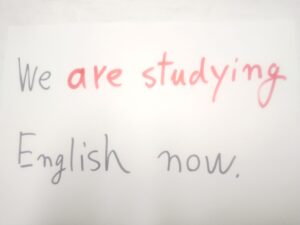 We are studying
English now.